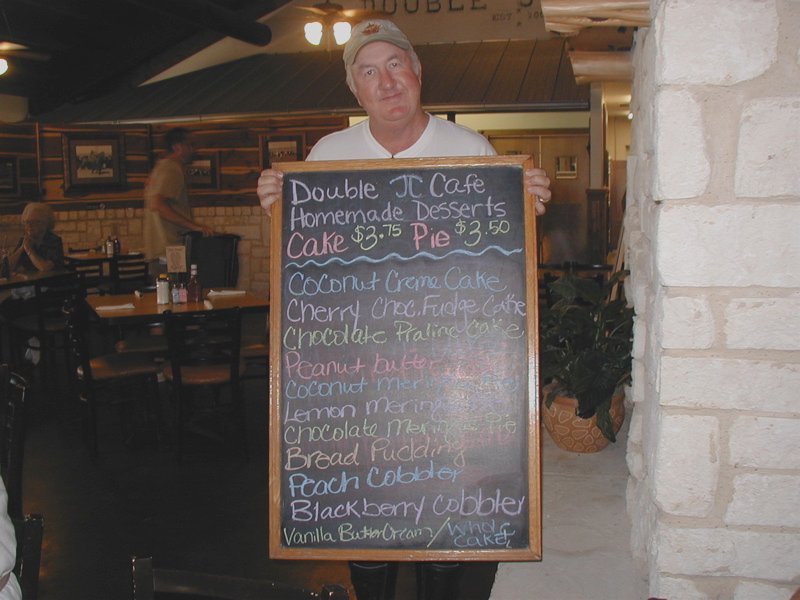 DOUBLE
EST
Double JC Cafe
Homemade Desserts
Cake $3.75 Pie $3.50
Coconut Creme Cake
Cherry Choc. Fudge Cake
Chocolate Praline Cake
Peanut butter
Coconut
Lemon
Chocolate Meringue Pie
Bread Pudding
Peach Cobbler
Blackberry Cobbler
Vanilla ButterCream / Whole
Cake